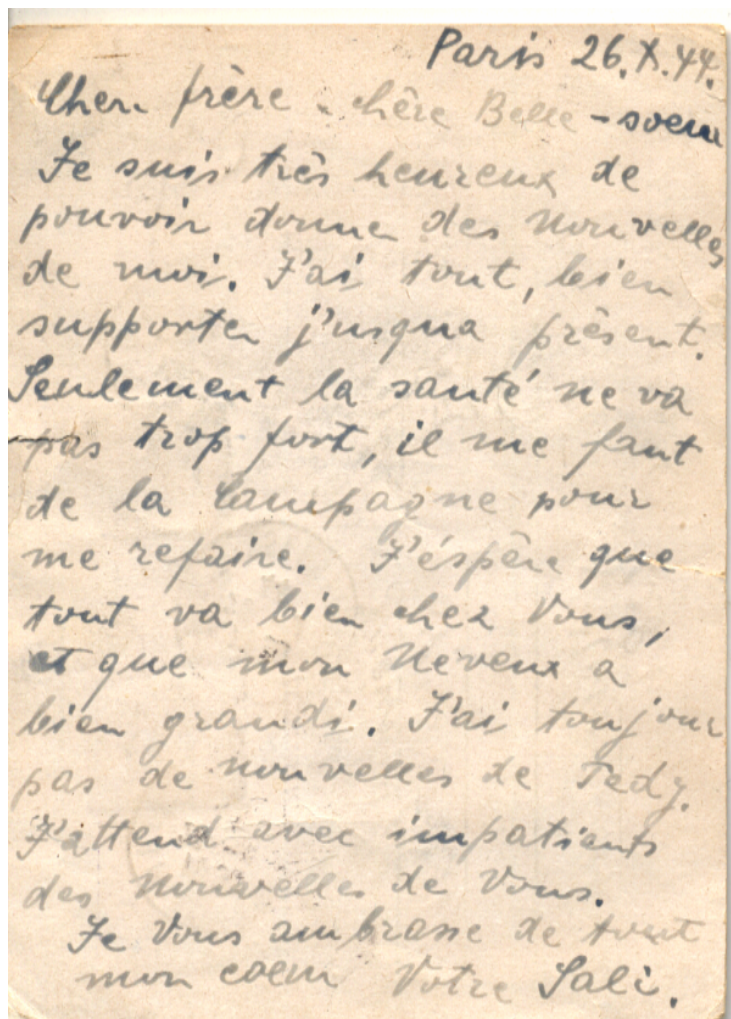 Paris 26.X.44.
Cher frère chère Belle-soeur
Je suis très heureux de
pouvoir donner des Nouvelles
de moi. J'ai tout, bien
supporter j'usqua présent.
Seulement la santé ne va
pas trop fort, il me faut
de la Campagne pour
me refaire. J'éspère que
tout va bien chez Vous,
et que mon Neveux a
bien grandi. J'ai toujour
pas de Nouvelles de Tedy.
J'attend avec impatients
des Nouvelles de Vous.
Je Vous ambrasse de tout
mon coeur Votre Sali.